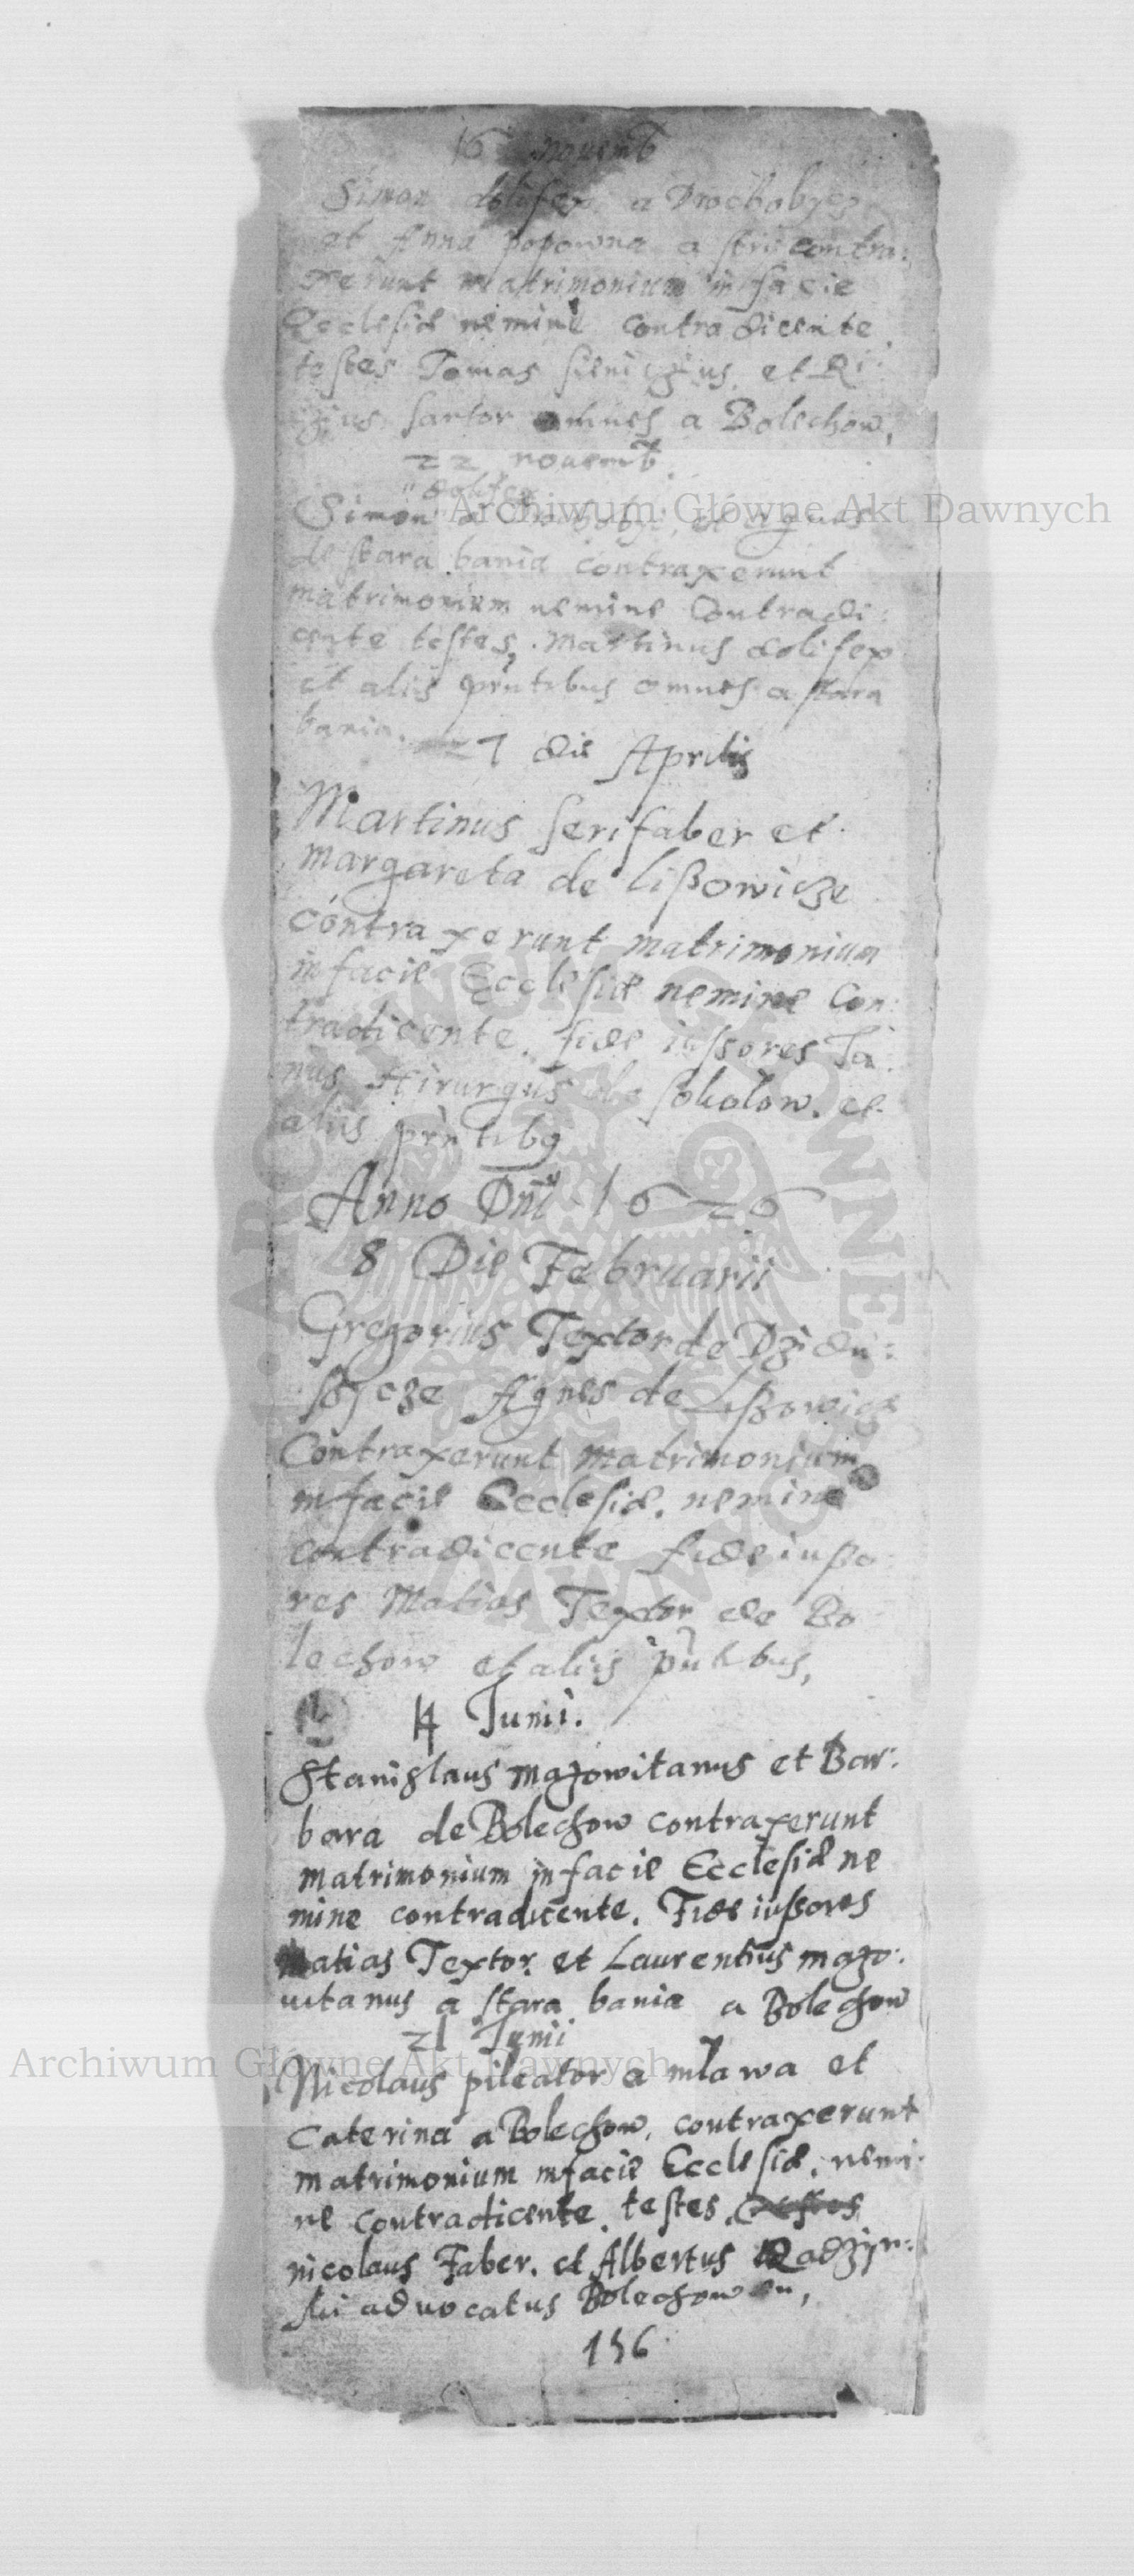 16 Nouemb
Simon dolifex a Drochobycz
et Anna popowna a strii contra:
xerunt matrimonium in facie
Ecclesiæ nemine contradicente
testes Tomas et
sartor omnes a Bolechow,
22 nouemb.
dolifex
Simon a et Agnes
de stara bania contraxerunt
matrimonium nemine Contradi:
cente testes, Martinus dolifex
et aliis prntibus omnes a stara
bania. 27 die Aprilis
Martinus serifaber et
Margareta de lißowicze
contraxerunt matrimonium
in facie Ecclesiæ nemine Con:
tradicente. fide iussores Ja:
nus Hirurgus sokolow. et
aliis prntibg
Anno Dni 1626
8 Die Februarii
Gregorius Textor de Dzidu:
szycze Agnes de Lißowicze
Contraxerunt matrimonium
in facie Ecclesiæ. nemine
contradicente fide iußo:
res Matias Textor de Bo
lechow et aliis prntibus,
14 Junii.
Stanislaus mazowitanus et Bar:
bara de Bolechow contraxerunt
matrimonium in facie Ecclesiæ ne
mine contradicente. Fide iußores
Matias Textor. et Laurentius mazo:
uitanus a stara bania a Bolechow
21 Junii
Nicolaus pileator a mlawa et
Caterina a Bolechow, contraxerunt
matrimonium in facie Ecclesiæ, nemi:
ne contradicente. testes. testes
nicolaus Faber. et Albertus Radzyn:
ski aduocatus Bolechowen,
156
Archiwum Główne Akt Dawnych
Archiwum Główne Akt Dawnych
ARCHIWUM GŁÓWNE AKT DAWNYCH